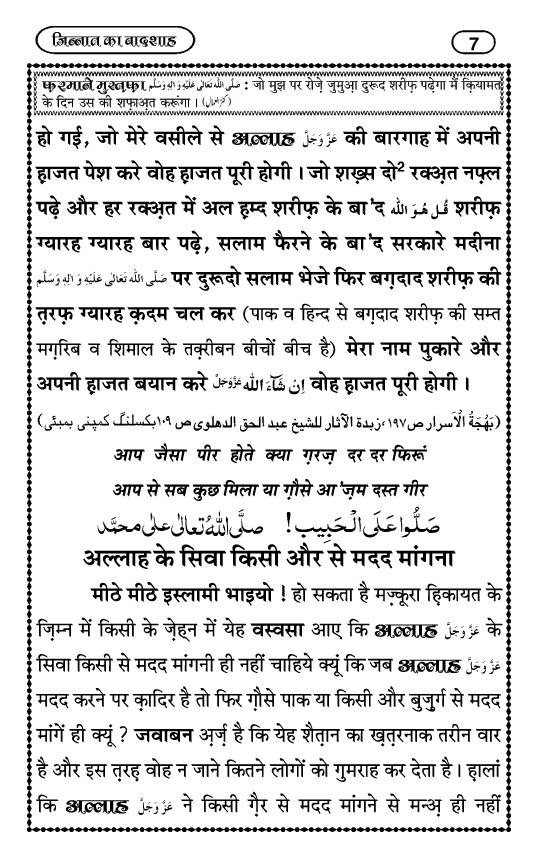 जिन्नात का बादशाह
7
फ़रमाने मुस्तफ़ा صَلَّى اللهُ تَعَالٰى عَلَيْهِ وَ اٰلِهٖ وَسَلَّم : जो मुझ पर रोज़े जुमुआ़ दुरूद शरीफ़ पढ़ेगा मैं क़ियामत
के दिन उस की शफ़ाअ़त करूंगा ।
हो गई, जो मेरे वसीले से अल्लाह عَزَّوَجَلَّ की बारगाह में अपनी
ह़ाजत पेश करे वोह ह़ाजत पूरी होगी । जो शख़्स दो² रक्अ़त नफ़्ल
पढ़े और हर रक्अ़त में अल ह़म्द शरीफ़ के बा'द قُلْ هُوَ الله शरीफ़
ग्यारह ग्यारह बार पढ़े, सलाम फैरने के बा'द सरकारे मदीना
صَلَّى اللهُ تَعَالٰى عَلَيْهِ وَ اٰلِهٖ وَسَلَّم पर दुरूदो सलाम भेजे फिर बग़दाद शरीफ़ की
त़रफ़ ग्यारह क़दम चल कर (पाक व हिन्द से बग़दाद शरीफ़ की सम्त
मग़रिब व शिमाल के तक़्रीबन बीचों बीच है) मेरा नाम पुकारे और
अपनी ह़ाजत बयान करे اِنْ شَآءَ الله عَزَّوَجَلَّ वोह ह़ाजत पूरी होगी ।
(بَهْجَةُ الْاَسرار ص ۱۹۷، زبدة الآثار للشيخ عبد الحق الدهلوی ص ۱۰۹ بکسلنگ کمپنی بمبئی)
आप जैसा पीर होते क्या ग़रज़ दर दर फिरूं
आप से सब कुछ मिला या ग़ौसे आ'ज़म दस्त गीर
صَلُّوا عَلَى الْحَبِيب! صلَّى اللهُ تعالٰى على محمَّد
अल्लाह के सिवा किसी और से मदद मांगना
मीठे मीठे इस्लामी भाइयो ! हो सकता है मज़्कूरा ह़िकायत के
ज़िम्न में किसी के ज़ेहन में येह वस्वसा आए कि अल्लाह عَزَّوَجَلَّ के
सिवा किसी से मदद मांगनी ही नहीं चाहिये क्यूं कि जब अल्लाह عَزَّوَجَلَّ
मदद करने पर क़ादिर है तो फिर ग़ौसे पाक या किसी और बुज़ुर्ग से मदद
मांगें ही क्यूं ? जवाबन अ़र्ज़ है कि येह शैत़ान का ख़त़रनाक तरीन वार
है और इस त़रह़ वोह न जाने कितने लोगों को गुमराह कर देता है । ह़ालां
कि अल्लाह عَزَّوَجَلَّ ने किसी ग़ैर से मदद मांगने से मन्अ़ ही नहीं